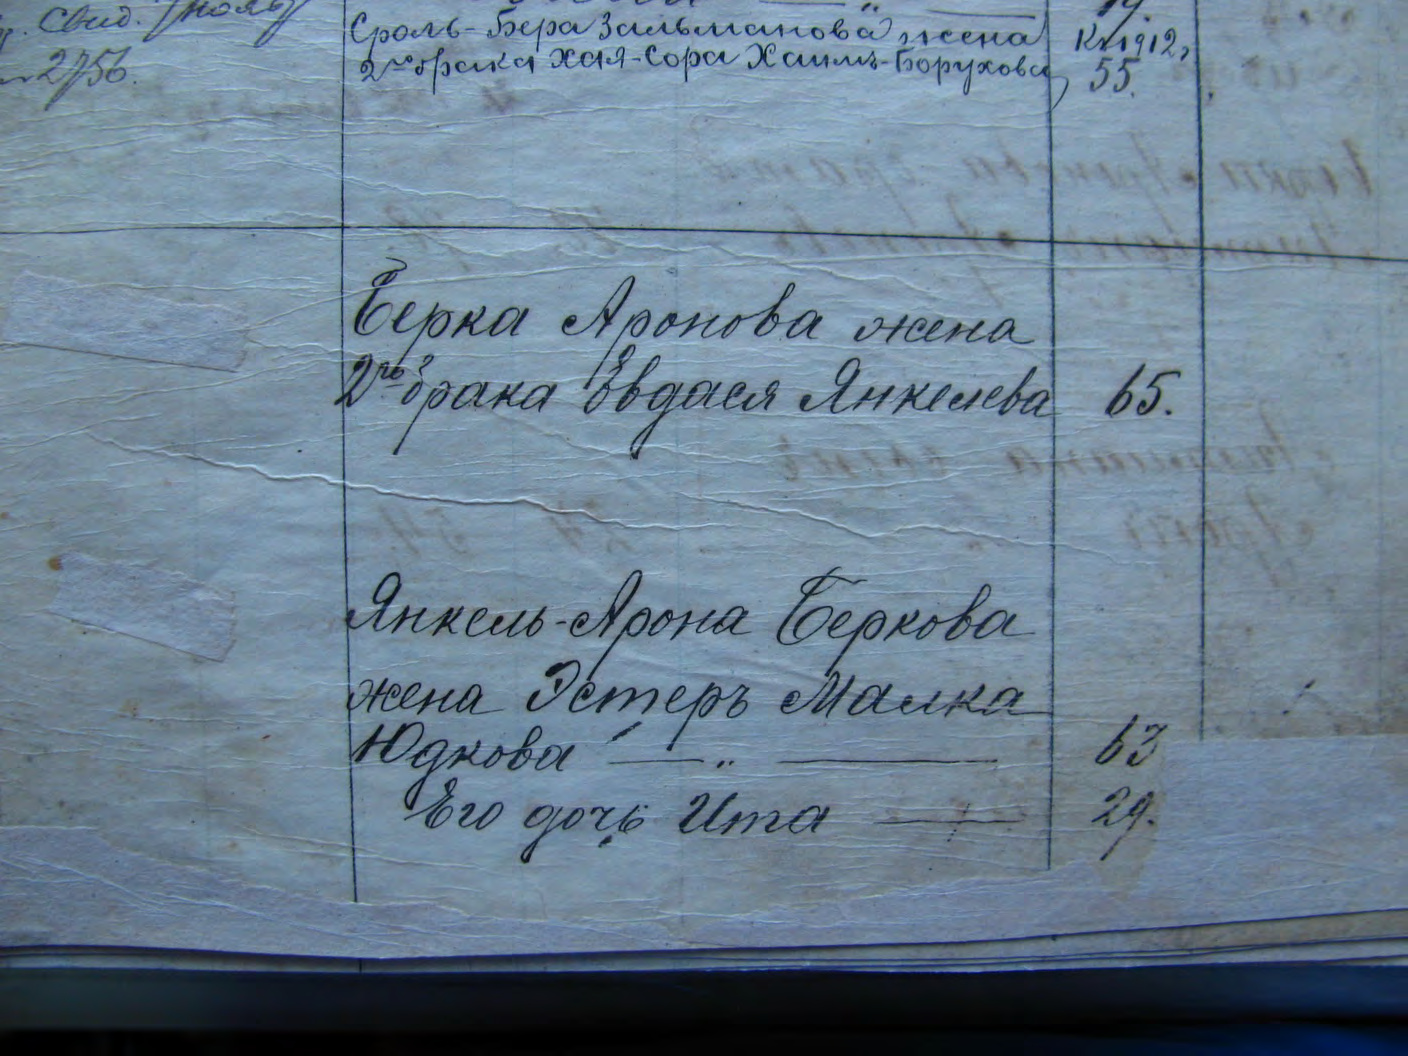 19.
Свид.
Сроль-Бера Зальманова жена К 1912,
№ 2756. 2го брака Хая-Сора Хаимъ-Борухова, 55.
Берка Аронова жена
2го брака Евдася Янкелева 65.
Янкель-Арона Беркова
жена Эстеръ Малка
Юдкова — „ — 63
Его дочь Ита — 29.